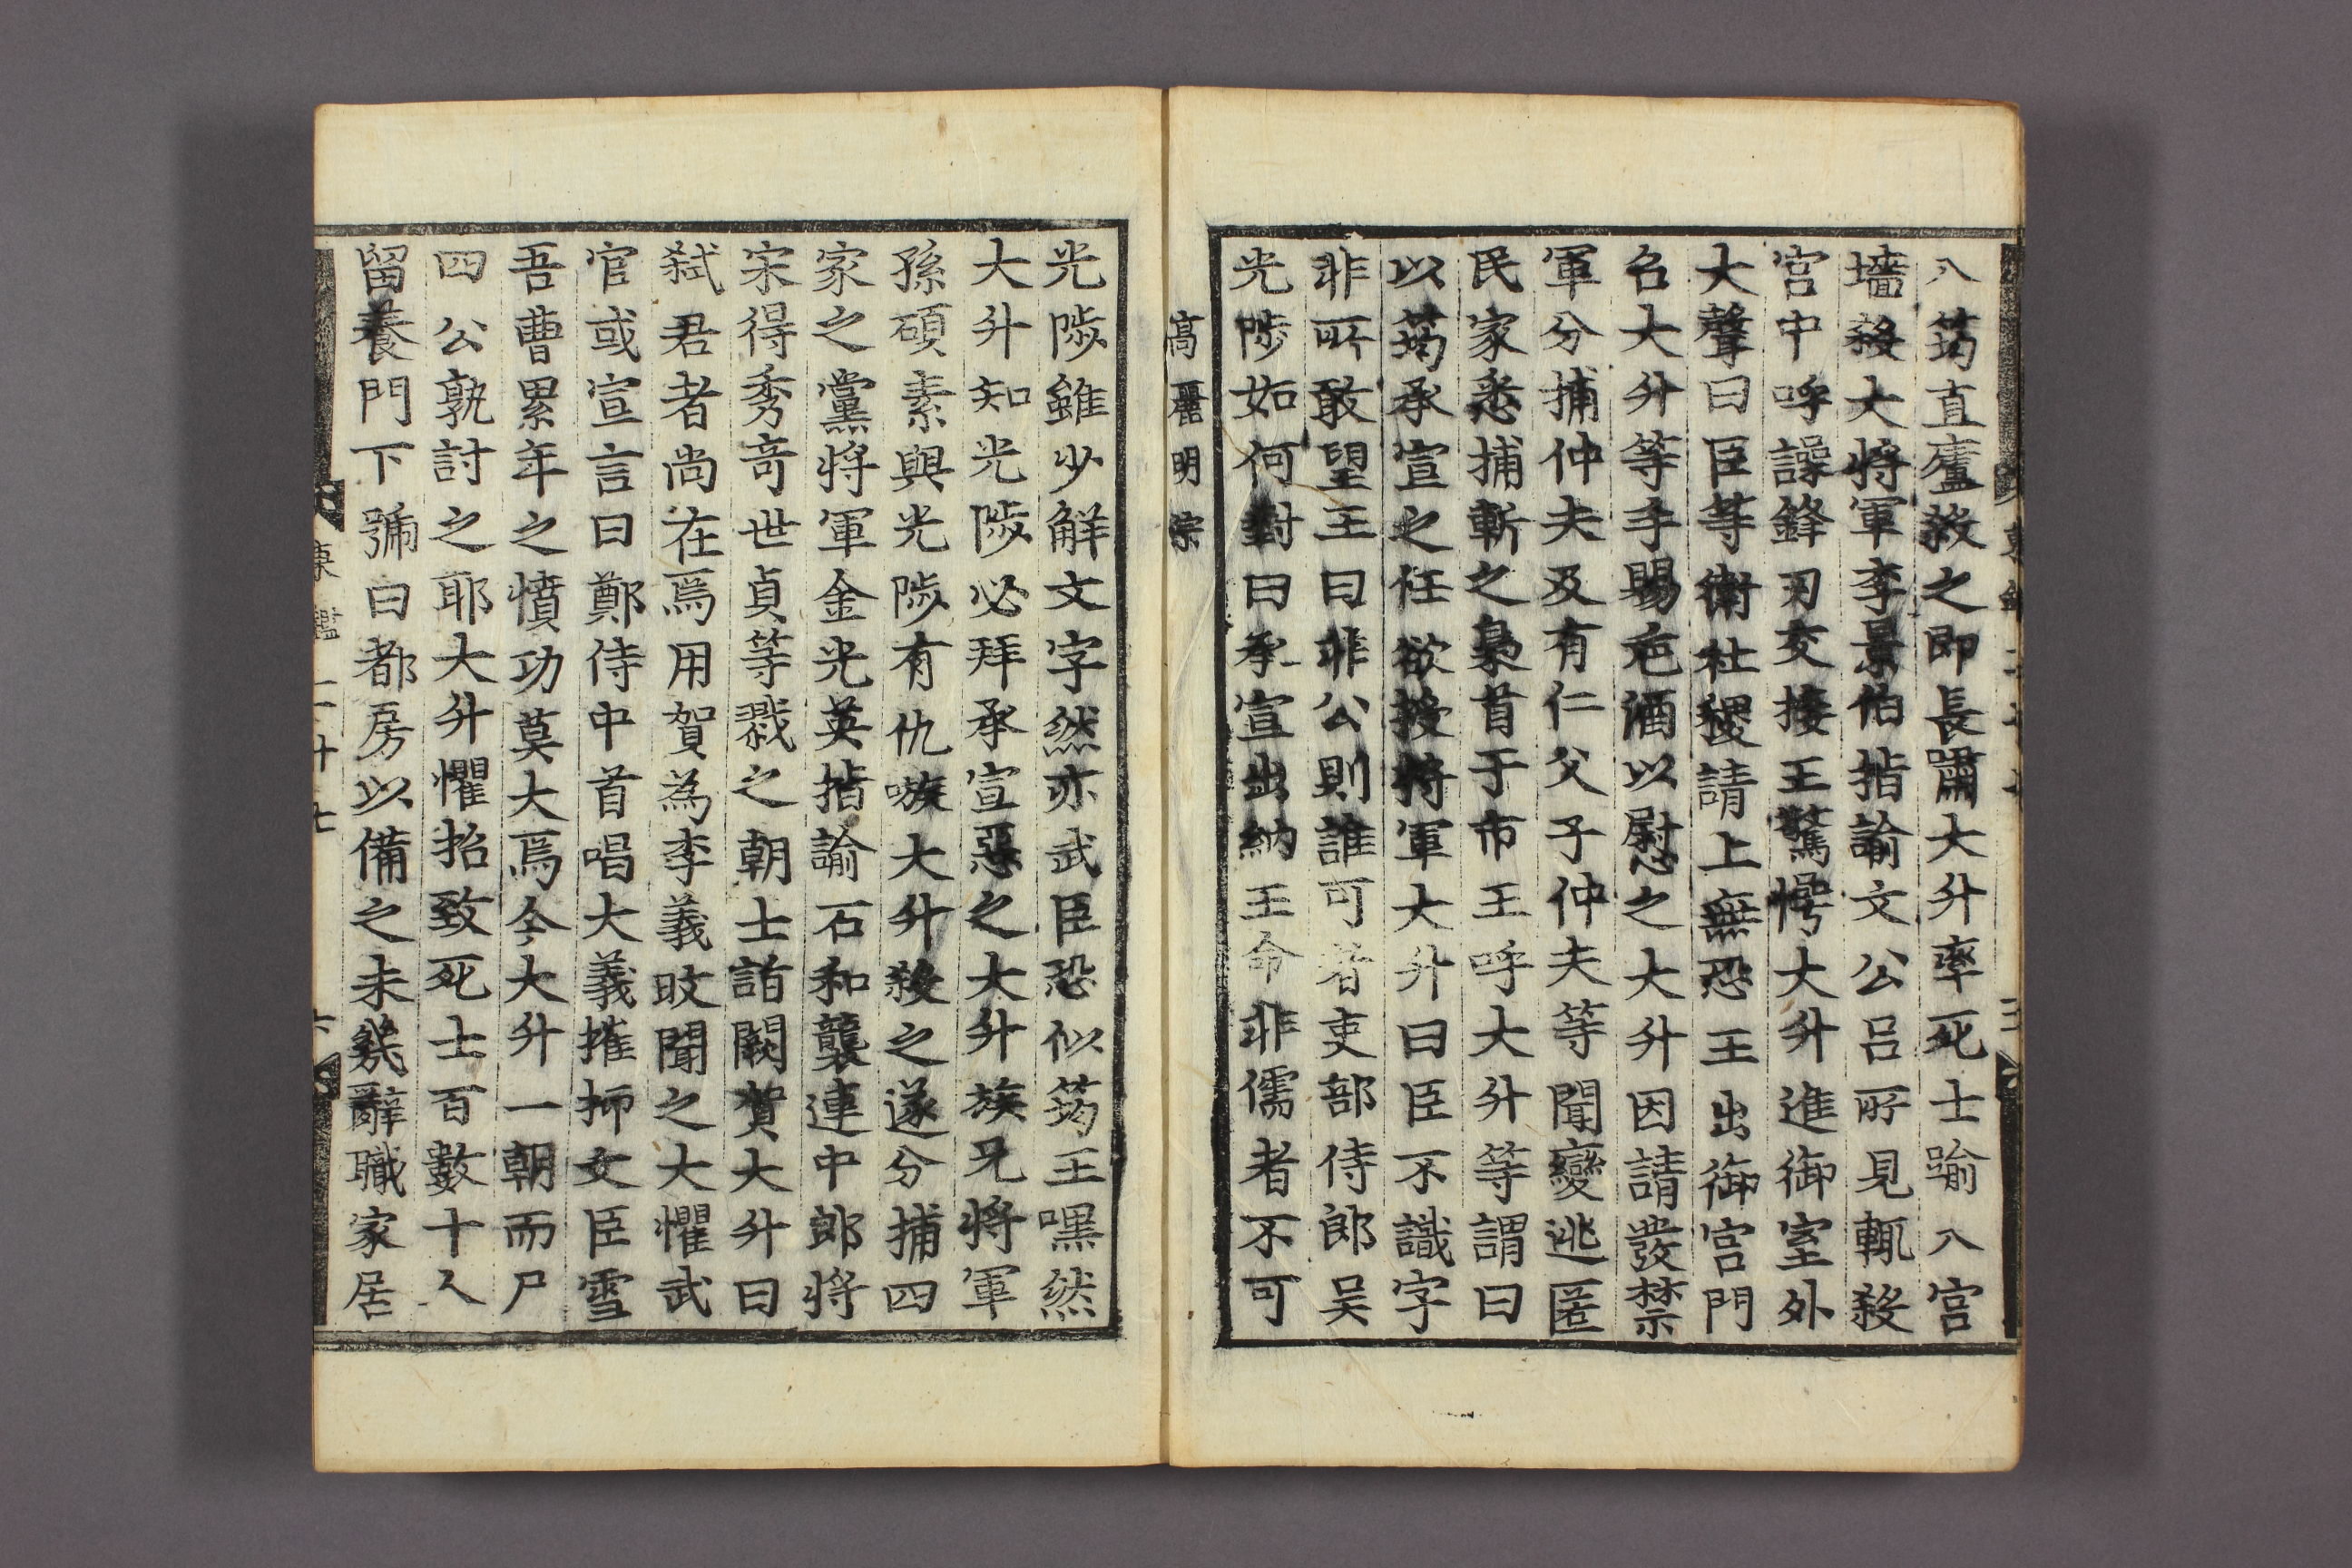 入筠直廬殺之即長嘯大升率死士踰入宮
墻殺大將軍李景伯指諭文公呂所見輒殺
宮中呼譟鋒刃交接王驚愕大升進御室外
大聲曰臣等衛社稷請上無恐王出御宮門
召大升等手賜卮酒以慰之大升因請發禁
軍分捕仲夫及有仁父子仲夫等聞變逃匿
民家悉捕斬之梟首于市王呼大升等謂曰
以筠承宣之任欲授將軍大升曰臣不識字
非所敢望王曰非公則誰可者吏部侍郎吳
光陟如何對曰承宣出納王命非儒者不可
高麗明宗
光陟雖少解文字然亦武臣恐似筠王嘿然
大升知光陟必拜承宣惡之大升族兄將軍
孫碩素與光陟有仇嗾大升殺之遂分捕四
家之黨將軍金光英指諭石和襲連中郎將
宋得秀竒世貞等戮之朝士詣闕賀大升曰
弑君者尚在焉用賀為李義旼聞之大懼武
官或宣言曰鄭侍中首唱大義摧抑文臣雪
吾曹累年之憤功莫大焉今大升一朝而尸
四公孰討之耶大升懼招致死士百數十人
留養門下號曰都房以備之未幾辭職家居